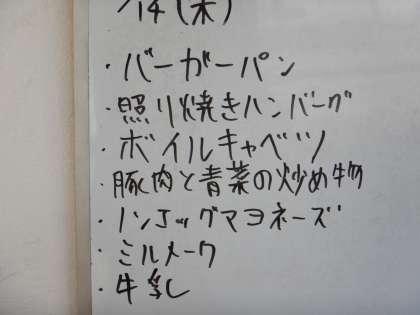 /14(木)
・バーガーパン
・照り焼きハンバーグ
・ボイルキャベツ
・豚肉と青菜の炒め物
・ノンエッグマヨネーズ
・ミルメーク
・牛乳